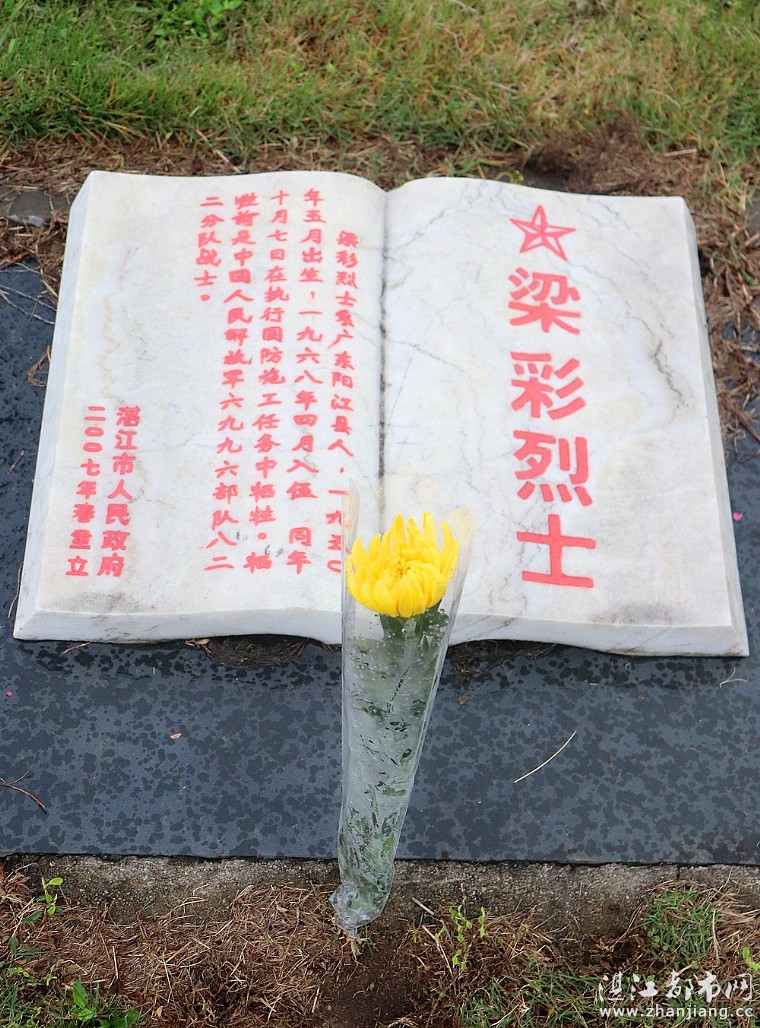 梁彩烈士
梁彩烈士系广东阳江县人，一九五〇
年五月出生，一九六八年四月入伍 同年
十月七日在执行国防施工任务中牺牲。牺
牲前是中國人民解放军六九九六部队八二
二分队战士。
湛江市人民政府
二〇〇七年春重立
湛江都市网
www.zhanjiang.cc